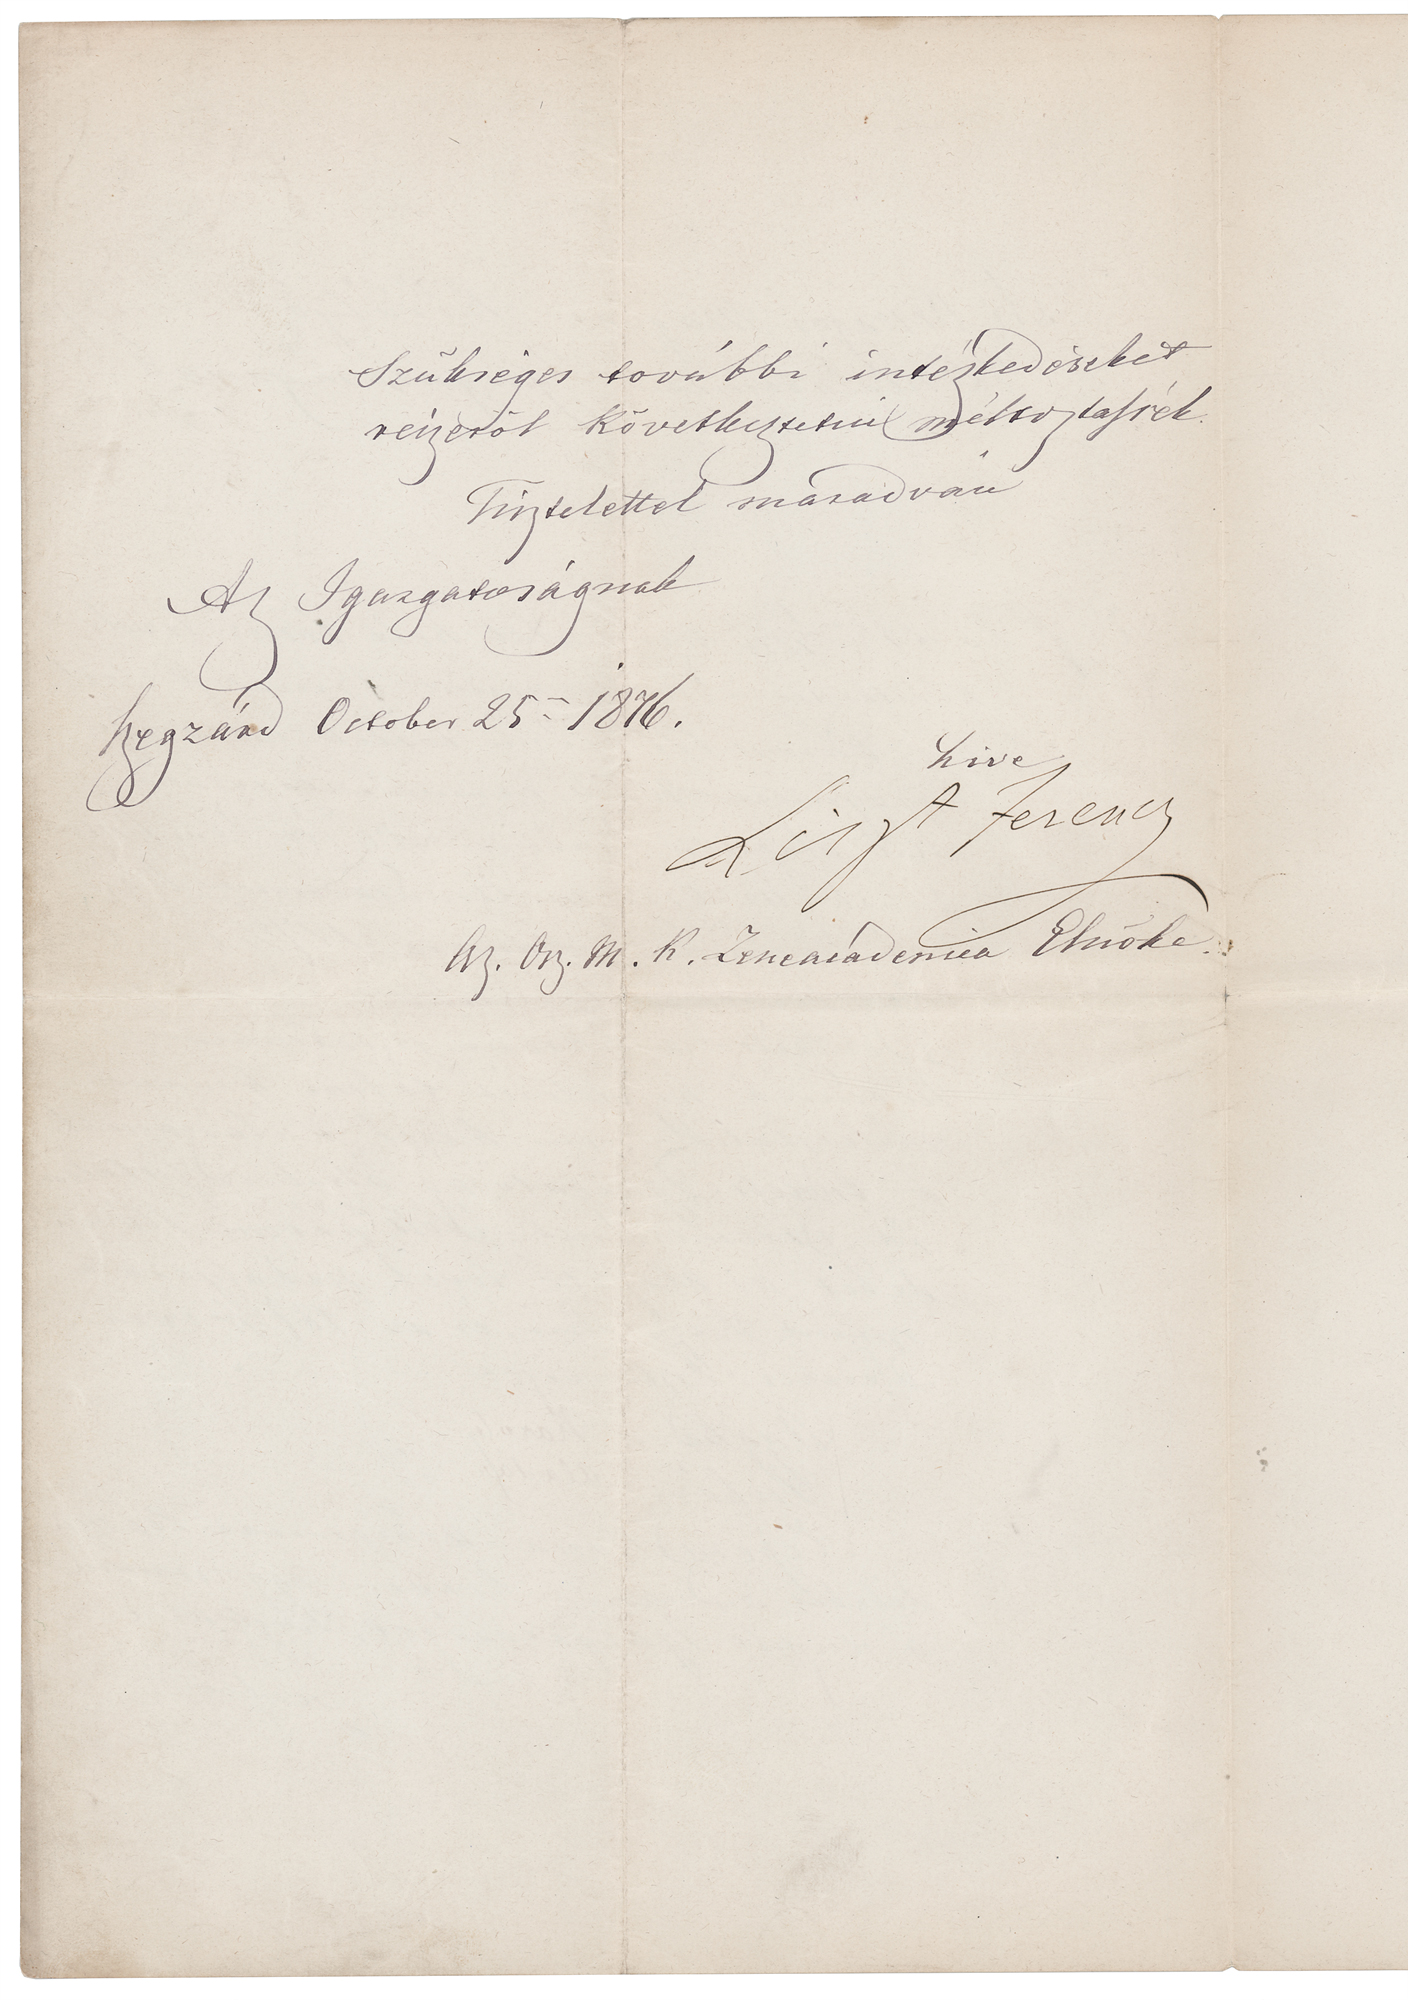 Szükséges további intézkedéseket
részéről következtetni méltoztassék.
Tisztelettel maradván
Az Igazgatóságnak
Szegzárd October 25= 1876.
hive
Liszt Ferencz
Az. Orz. M. K. Zeneacádemiea Elnöke.